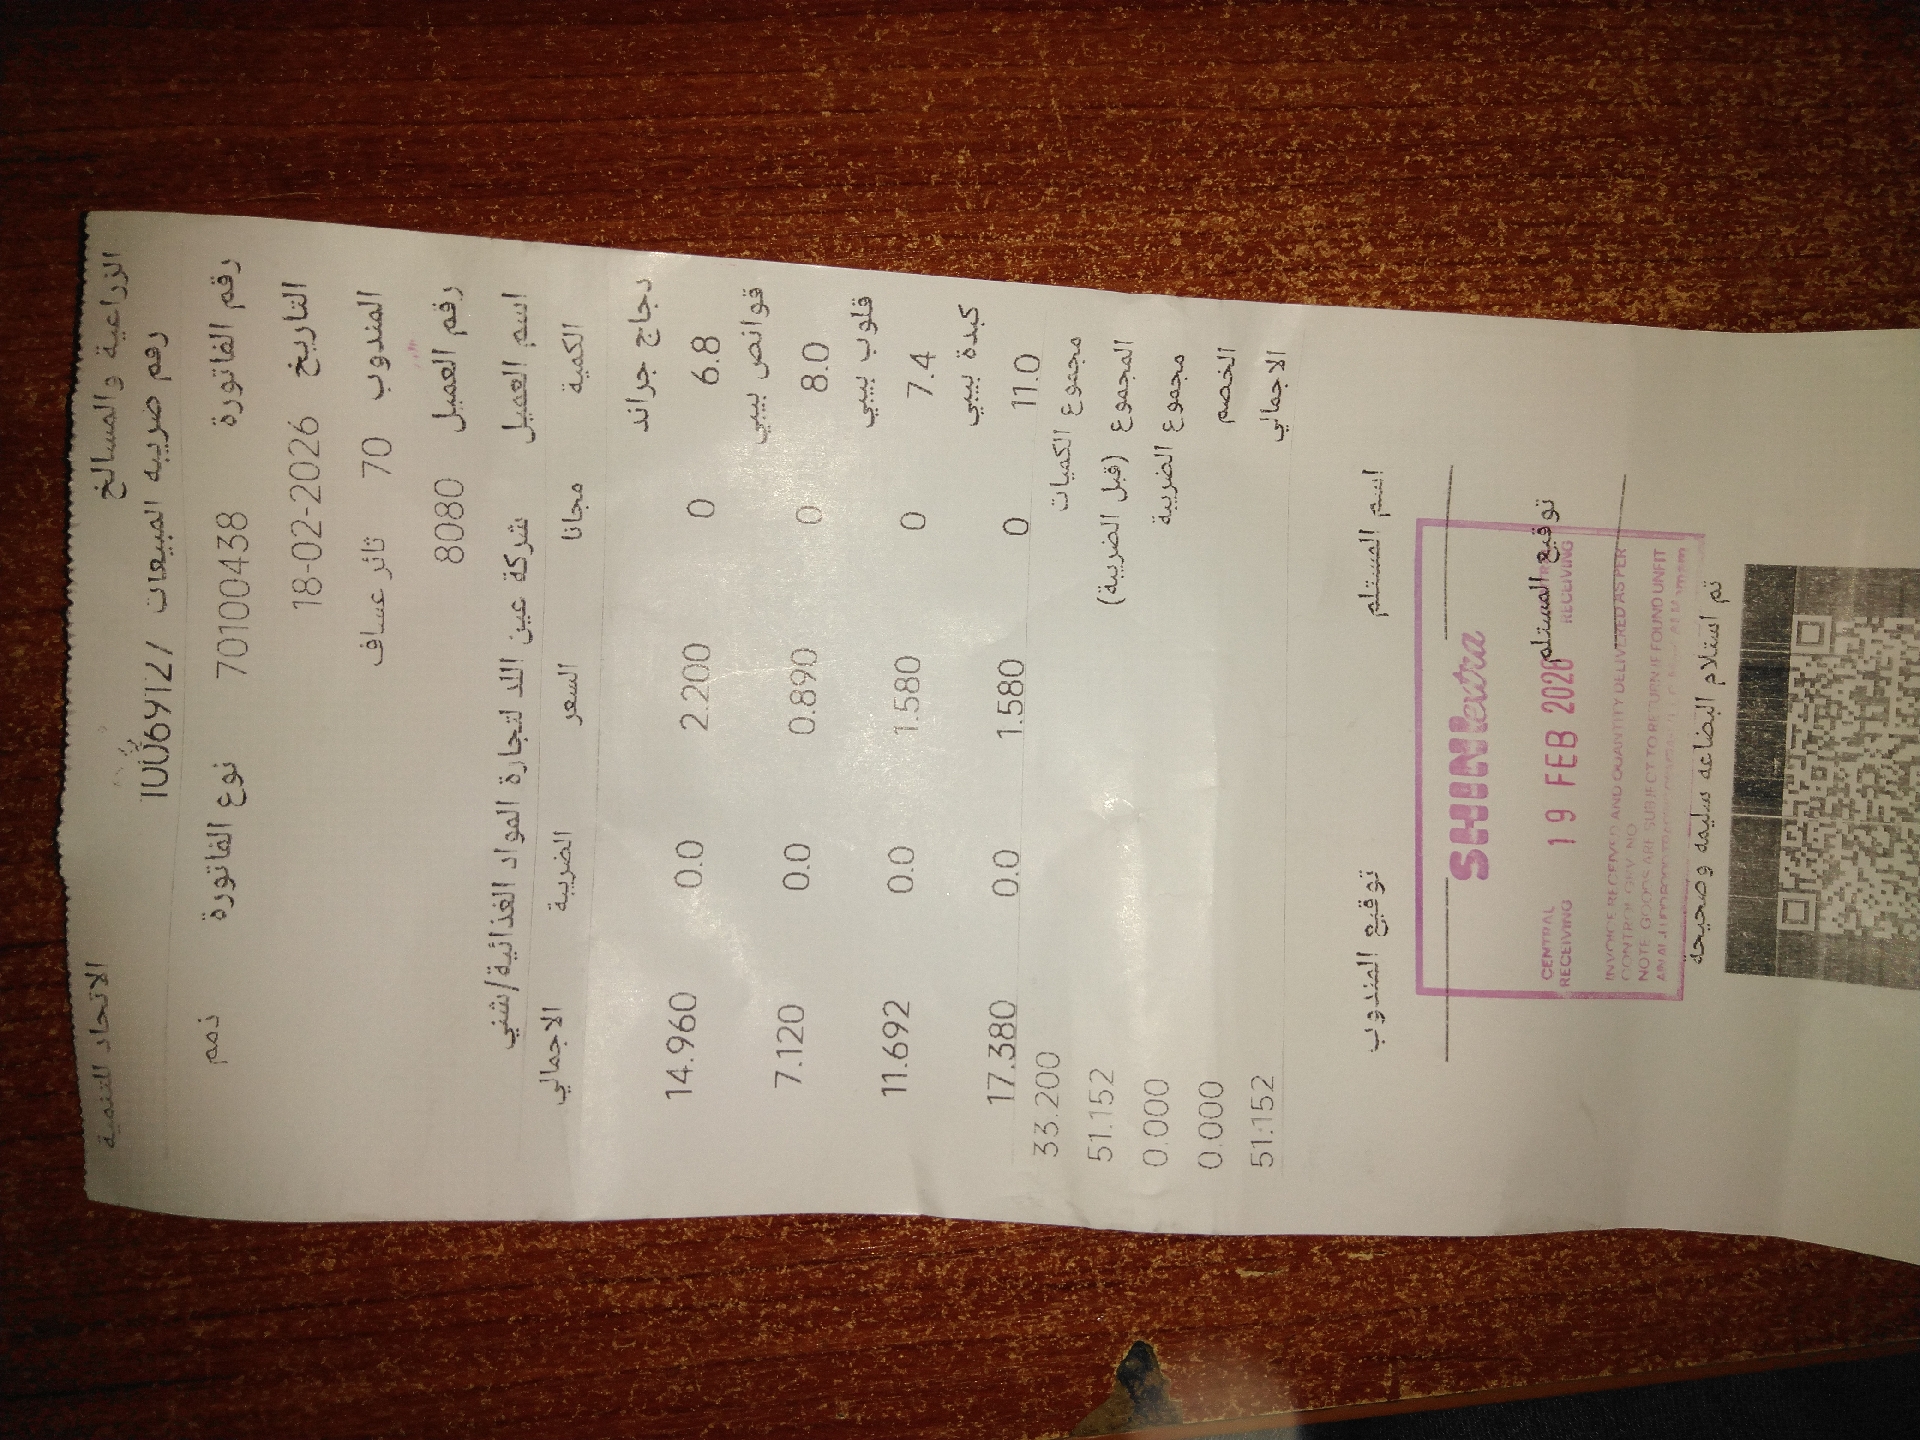 الاتحاد للتنمية الزراعية والمسالخ
رقم ضريبه المبيعات
رقم الفاتورة 70100438 نوع الفاتورة ذمم
التاريخ 18-02-2026
المندوب 70 ثائر عساف
رقم العميل 8080
اسم العميل شركة عين اللد لتجارة المواد الغذائية/شني
الكمية مجانا السعر الضريبة الاجمالي
دجاج جراند
6.8 0 2.200 0.0 14.960
قوانص بيبي
8.0 0 0.890 0.0 7.120
قلوب بيبي
7.4 0 1.580 0.0 11.692
كبدة بيبي
11.0 0 1.580 0.0 17.380
مجموع الكميات 33.200
المجموع (قبل الضريبة) 51.152
مجموع الضريبة 0.000
الخصم 0.000
الاجمالي 51.152
اسم المستلم توقيع المندوب
توقيع المستلم
SHINI extra
CENTRAL RECEIVING 19 FEB 2026 RECEIVING
INVOICE RECEIVED AND QUANTITY DELIVERED AS PER
CONTROL GRV. NO
NOTE GOODS ARE SUBJECT TO RETURN IF FOUND UNFIT
تم استلام البضاعه سليمه وصحيحه